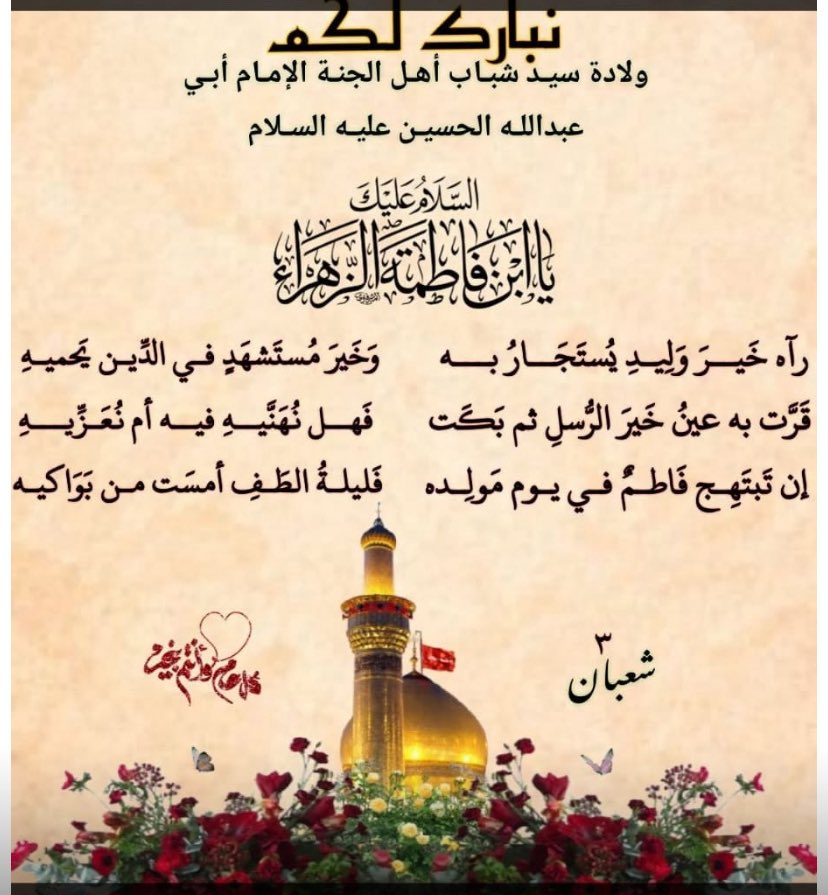 نبارك لكم
ولادة سيد شباب أهل الجنة الإمام أبي
عبدالله الحسين عليه السلام
السَّلَامُ عَلَيْكَ
يَا ابْنَ فَاطِمَةَ الزَّهْرَاءِ
رآه خَيـرَ وَلِيـدِ يُستَجَـارُ بـه وَخَيرَ مُستَشهَدٍ في الدِّيـن يَحميـهِ
قَرَّت به عينُ خَيرَ الرُّسلِ ثم بَكَت فَهـل نُهَنَّيـهِ فيـه أم نُعَـزِّيـهِ
إن تَبتَهِـج فَاطـمٌ فـي يـوم مَولِـده فَليلـةُ الطَـفِ أمسَت مـن بَوَاكيـه
٣
شعبان
كل عام وأنتم بخير